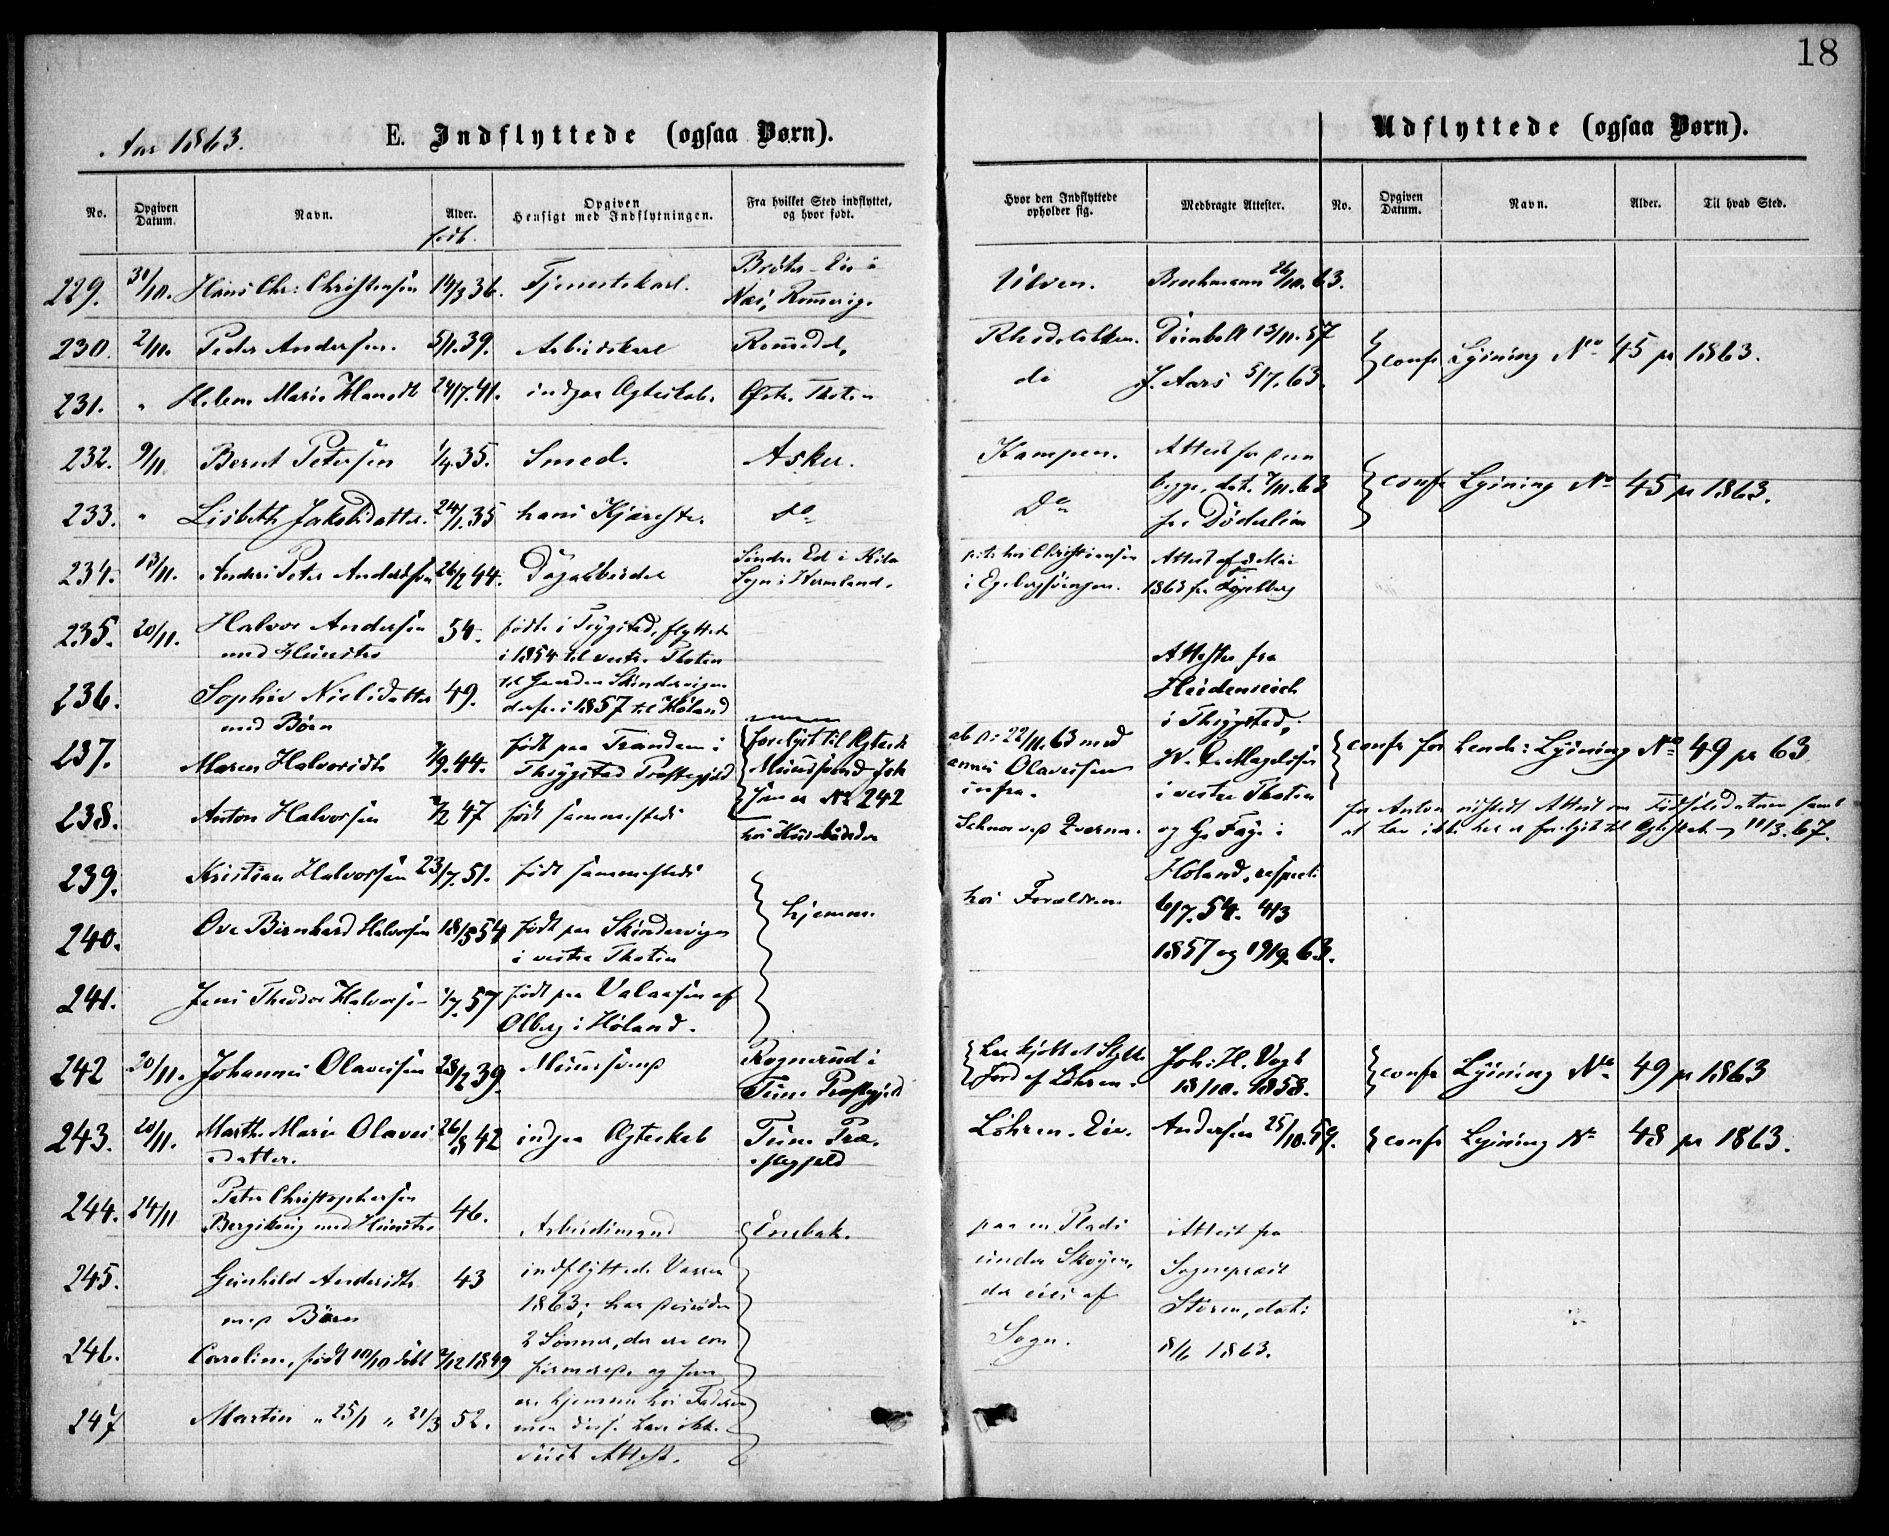 18
Aar 1863.
E. Indflyttede (ogsaa Børn).
Udflyttede (ogsaa Børn).
No.
Opgiven Datum.
Navn.
Alder.
født.
Opgiven
Hensigt med Indflytningen.
Fra hvilket Sted indflyttet,
og hvor født.
Hvor den Indflyttede
opholder sig.
Medbragte Attester.
No.
Opgiven Datum.
Navn.
Alder.
Til hvad Sted.
229. 31/10. Hans Chr: Christensen 14/3 36. Tjenestekarl. Eie i
Næs, Romerige Brochmann 26/10. 63.
230. 2/11. Peder Andersen. 5/1. 39. Arbeidskarl 13/11. 57
} confr Lysning No 45 pr 1863.
231. " Helene Marie 24/7. 41. indgaa Ægteskab. Østr. Thoten do J. Aars 5/7. 63.
232. 9/11 Bernt Petersen 1/4. 35. Smed. Asker. Kampen. Attest for dem
233. " Lisbeth Jakobsdatter. 24/1. 35 hans Kjæreste. do Do begge, dat. 7/11. 63
fra Døderlein
} confr Lysning No 45 pr 1863.
234. 13/11. Anders Peter Anderssen 26/2 44. Dagarbeider Søndre Ed i Kila
Sogn i Vermland.
hos Christiansen
i Egebergsvingen.
Attest af Mai
1863 fra
235. 20/11. Halvor Andersen
med Hustru
54. født i Trygstad, flyttede
i 1854 til vestre Thoten
236. Sophie Nielsdatter
med Børn
49. til Gaarden Skindervigen
derfra i 1857 til Høland
Attester fra
Heidenreich
i Thrygstad,
237. Maren Halvorsdtr 2/9. 44. født paa Trandem i
Thrygstad Præstegjeld
forlovet til Ægtesk
Muursvend Joh
238. Anton Halvorsen 2/2 47 født sammesteds
No 242
22/11. 63 med
Olavessen
infra.
i vestre Thoten
} confr for hende: Lysning No 49 pr 63
for Anton udstedt Attest om Fødselsdatum samt
at han ikke her er forlovet til Ægtesk 11/3. 67.
og G. Faye i
239. Kristian Halvorsen 23/7. 51. født sammesteds
Høland, respect:
240. Ove Bernhard Halvorsen 18/5 54 født paa Skindervigen
i vestre Thoten
} hjemme. hos Forældrene 6/7. 54. 4/3
1857 og 19/9. 63.
241. Jens Theodor Halvorsen 1/7. 57 født paa Valaasen af
Olberg i Høland.
242 20/11. Johannes Olavessen 28/2 39. Muursvend Rognerud i
Tune Præstegjeld
har kjøbt et Stykke
Jord af Løhren.
Joh: H. Vogt
13/10. 1858.
} confr Lysning No 49 pr 1863
243. 20/11. Marthe Marie Olaves
datter.
26/8 42 indgaa Ægteskab Tune Præ-
stegjeld
Løhren. Eie. Andersen 25/10. 59. } confr Lysning No 48 pr 1863.
244. 24/11 Peter Christophersen
med Hustru
46. Arbeidsmand Enebak.
245. Gunhild Andersdtr
med Børn
43 indflyttede Vaaren
1863; har desuden
2 Sønner, der ere con
firmerede, og som
ere hjemme hos Faderen
men disse have ikke
viist Attest.
paa en Plads
under Skøyen,
der eies af
Sogn.
Attest fra
Sognepræst
dat:
8/6 1863.
246. Caroline, født 10/10 døbt 2/12 1849
247 Martin " 25/1 " 21/3 52.